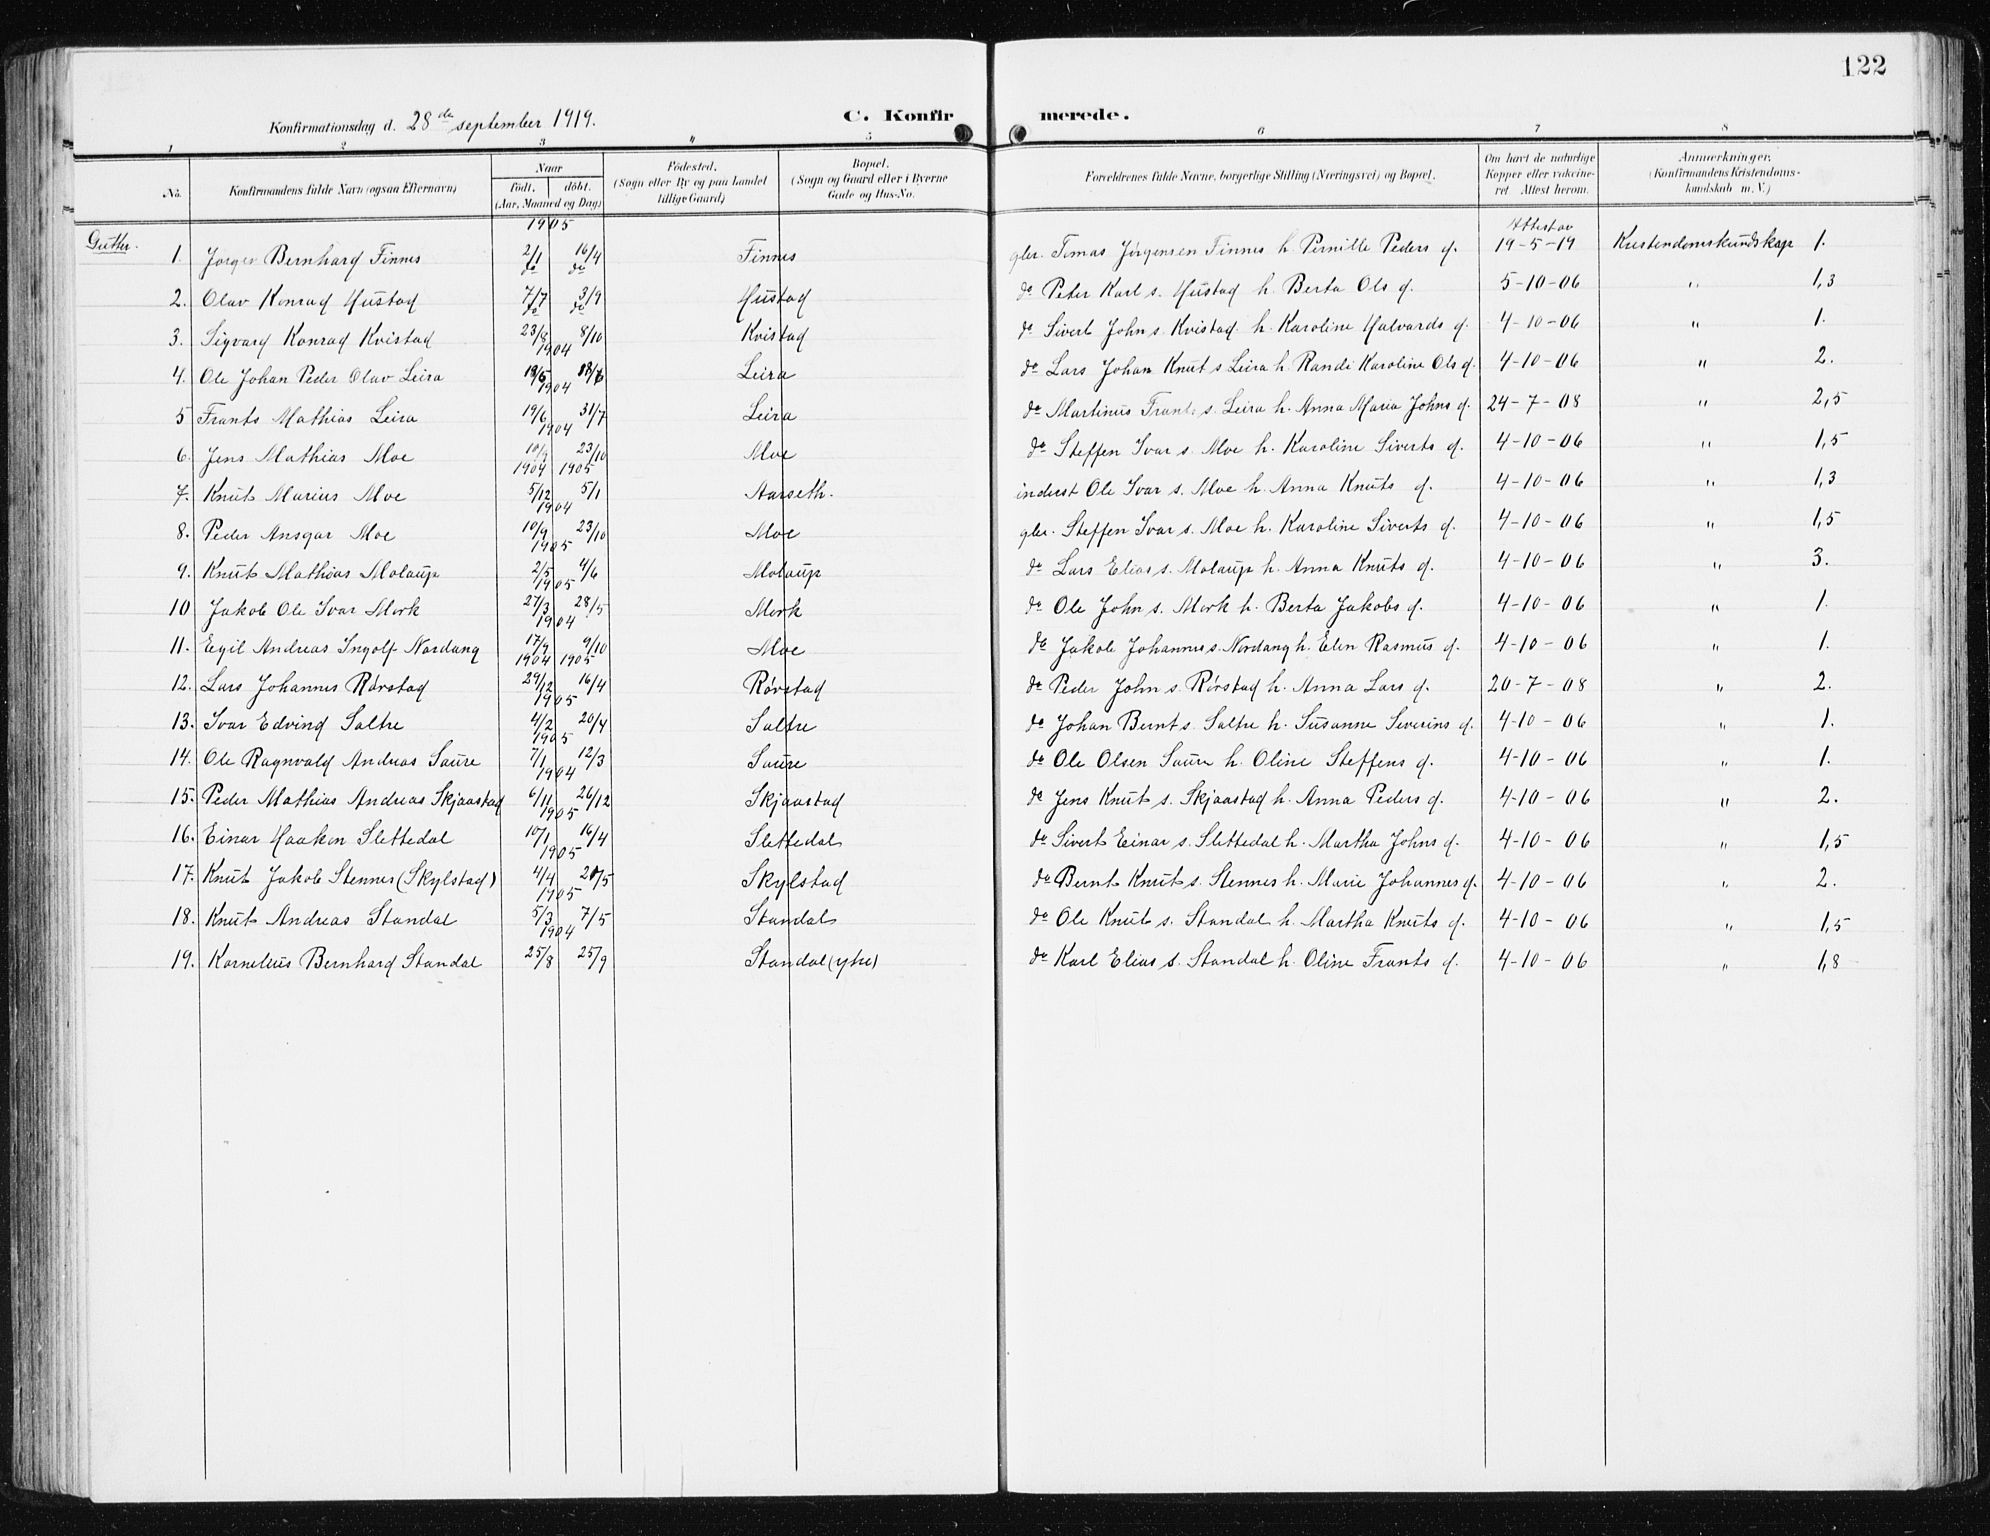 122
Konfirmationsdag d. 28de september 1919.
C. Konfirmerede.
1 2 3 4 5 6 7 8
No. Konfirmandens fulde Navn (ogsaa Efternavn) Naar født. døbt. (Aar, Maaned og Dag) Fødested. (Sogn eller By og paa Landet tillige Gaard) Bopæl. (Sogn og Gaard eller i Byerne Gade og Hus-No. Forældrenes fulde Navne, borgerlige Stilling (Næringsvei) og Bopæl. Om havt de naturlige Kopper eller vakcineret Attest herom. Anmærkninger. (Konfirmandens Kristendomskundskab m. V.)
Gutter. 1905 Attest av
1. Jørgen Bernhard Finnes 2/1 16/4 Finnes gbr. Tomas Jørgensen Finnes h. Pernille Peders d. 19-5-19 Kristendomskundskap 1.
do do
2. Olav Konrad Hustad 7/7 3/9 Hustad do Peter Karl s. Hustad h. Berta Ols d. 5-10-06 " 1,3
do do
3. Sigvard Konrad Kvistad 23/8 8/10 Kvistad do Sivert John s. Kvistad h. Karoline Halvards d. 4-10-06 " 1.
1904
4. Ole Johan Peder Olav Leira Leira do Lars Johan Knut s Leira h. Randi Karoline Ols d. 4-10-06 " 2.
1904
5 Frants Mathias Leira 19/6 31/7 Leira do Martinus Frants s. Leira h. Anna Maria Johns d. 24-7-08 " 2,5
1904
6. Jens Mathias Moe 10/9 23/10 Moe do Steffen Ivar s. Moe h. Karoline Siverts d. 4-10-06 " 1,5
1904 1905
7. Knut Marius Moe 5/12 5/1 Aarseth. indrest Ole Ivar s. Moe h. Anna Knuts d. 4-10-06 " 1,3
1904
8. Peder Ansgar Moe 10/9 23/10 Moe gbr. Steffen Ivar s. Moe h. Karoline Siverts d. 4-10-06 " 1,5
1905
9. Knut Mathias Molaup 2/5 4/6 Molaup do Lars Elias s. Molaup h. Anna Knuts d. 4-10-06 " 3.
1905
10 Jakob Ole Ivar Mork 27/3 28/5 Mork do Ole John s. Mork h. Berta Jakobs d. 4-10-06 " 1.
1904
11. Egil Andreas Ingolf Nordang 17/9 9/10 Moe do Jakob Johannes s. Nordang h. Elen Rasmus d. 4-10-06 " 1.
1904 1905
12. Lars Johannes Rørstad 29/12 16/4 Rørstad do Peder John s. Rørstad h. Anna Lars d. 20-7-08 " 2.
1905
13. Ivar Edvind Saltre 4/2 20/4 Saltre do Johan Bernt s. Saltre h. Susanne Severins d. 4-10-06 " 1.
1905
14. Ole Ragnvald Andreas Saure 7/1 12/3 Saure do Ole Olsen Saure h. Oline Steffens d. 4-10-06 " 1.
1904
15. Peder Mathias Andreas Skjaastad 6/11 26/12 Skjaastad do Jens Knut s. Skjaastad h. Anna Peders d. 4-10-06 " 2.
1905
16. Einar Haakon Slettedal 10/1 16/4 Slettedal do Sivert Einar s. Slettedal h. Martha Johns d. 4-10-06 " 1,5
1905
17. Knut Jakob Stennes (Skylstad) 4/4 Skylstad do Bernt Knut s. Stennes h. Marie Johannes d. 4-10-06 " 2.
1905
18. Knut Andreas Standal 5/3 7/5 Standal do Ole Knut s. Standal h. Martha Knuts d. 4-10-06 " 1,5
1904
19. Kornelius Bernhard Standal 25/8 25/9 Standal (ytre) do Karl Elias s. Standal h. Oline Frants d. 4-10-06 " 1,8